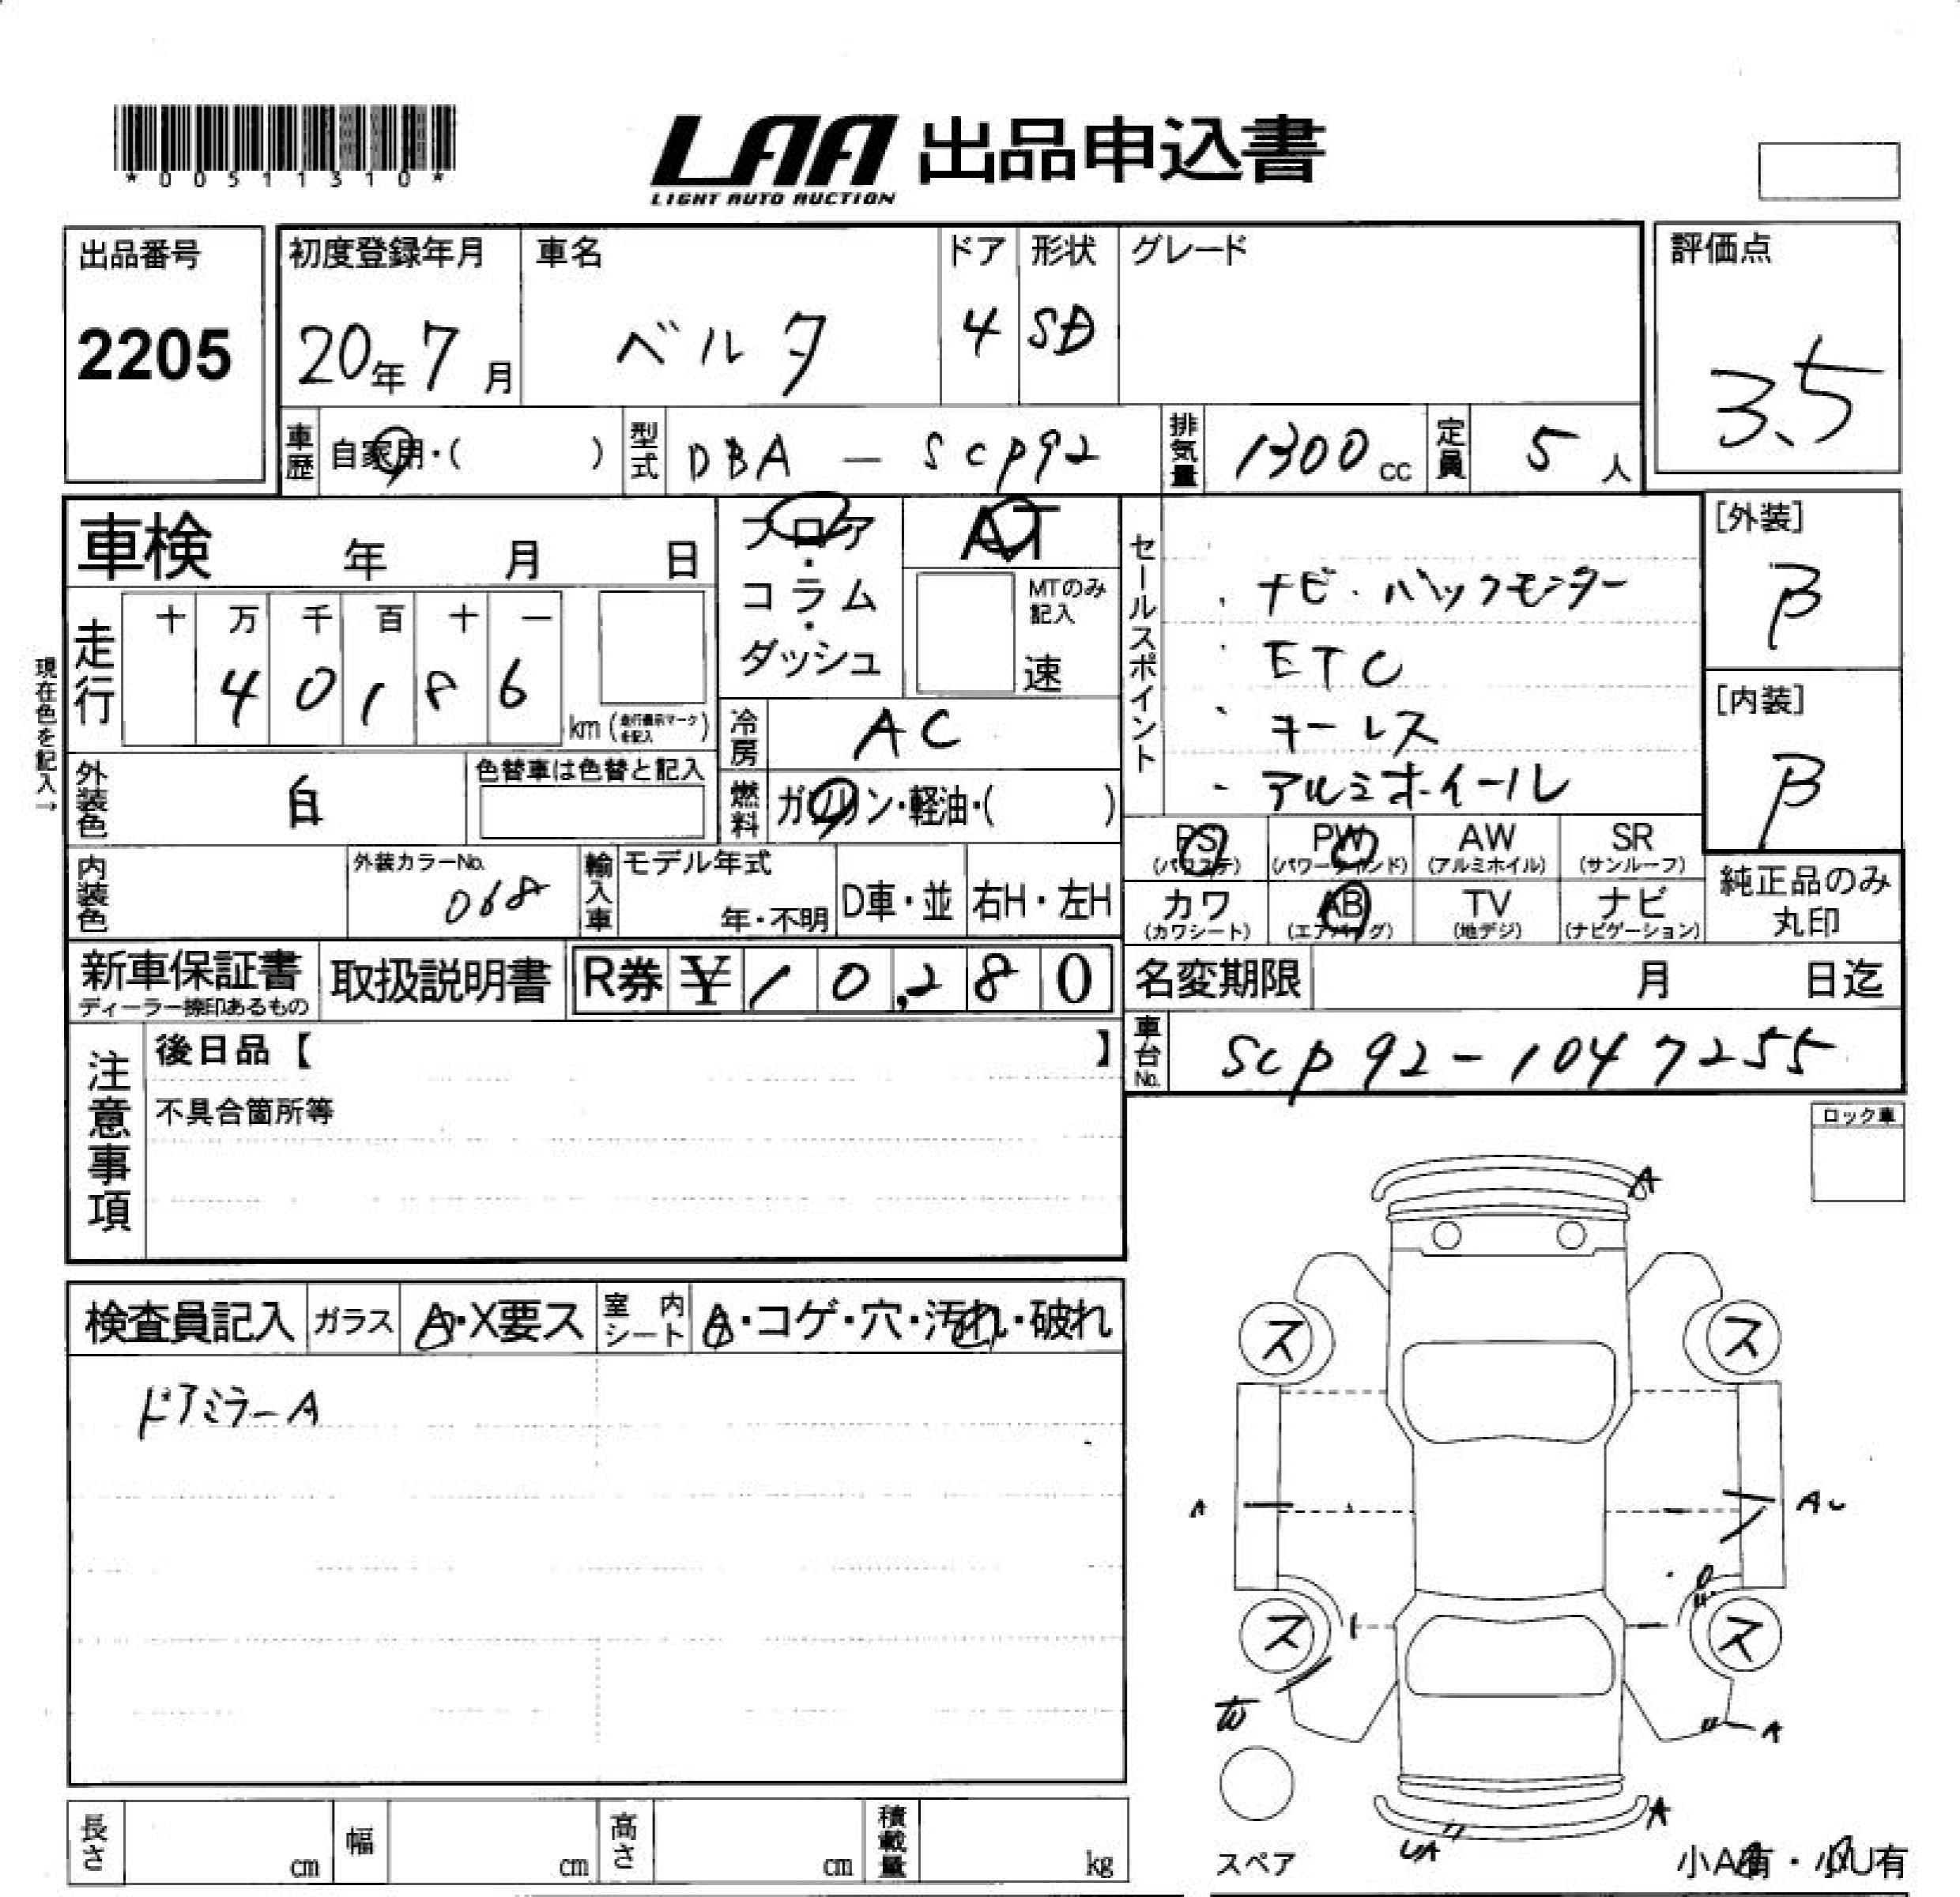 *00511310*
LAA 出品申込書
LIGHT AUTO AUCTION
出品番号
2205
初度登録年月
20年7月
車名
ベルタ
ドア
4
形状
SD
グレード
評価点
3.5
車歴
自家用・( )
型式
DBA - SCP92
排気量
1300cc
定員
5人
車検 年 月 日
フロア
・
コラム
・
ダッシュ
AT
MTのみ
記入
速
セールスポイント
・ナビ・バックモニター
・ETC
・キーレス
・アルミホイール
[外装]
B
[内装]
B
現在色を記入→
走行
十 万 千 百 十 一
4 0 1 8 6
km (走行表示マークを記入)
冷房
AC
外装色
白
色替車は色替と記入
燃料
ガソリン・軽油・( )
PS
(パワステ)
PW
(パワーウインド)
AW
(アルミホイル)
SR
(サンルーフ)
内装色
外装カラーNo.
068
輸入車
モデル年式
年・不明
D車・並
右H・左H
カワ
(カワシート)
AB
(エアバッグ)
TV
(地デジ)
ナビ
(ナビゲーション)
純正品のみ
丸印
新車保証書
ディーラー捺印あるもの
取扱説明書
R券 ¥10,280
名変期限 月 日迄
車台No.
SCP92-1047255
注意事項
後日品【 】
不具合箇所等
ロック車
検査員記入
ガラス
A・X要ス
室内シート
A・コゲ・穴・汚れ・破れ
ドアミラーA
A
ス ス
A
ス ス
A
A
スペア
小A有・小U有
長さ cm
幅 cm
高さ cm
積載量 kg